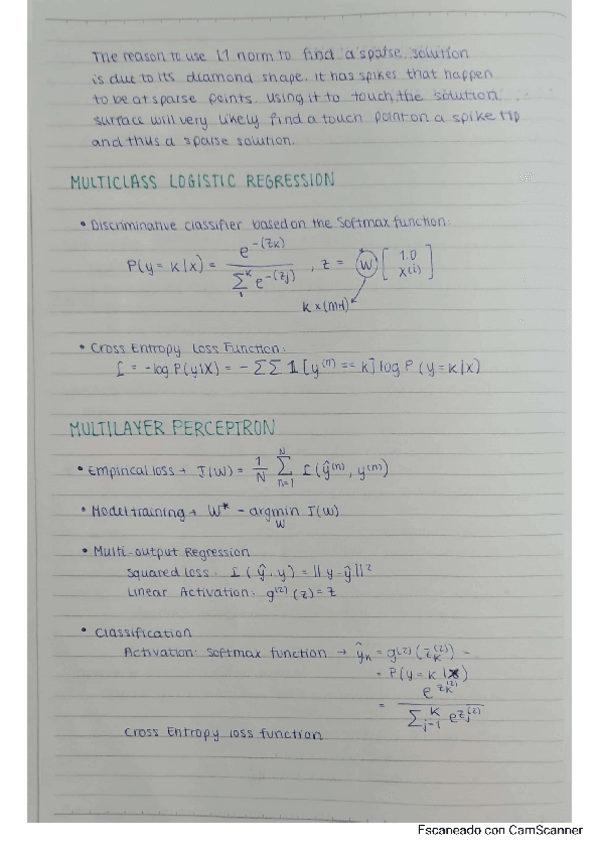 The reason to use L1 norm to find a sparse solution
is due to its diamond shape. It has spikes that happen
to be at sparse points. Using it to touch the solution
surface will very likely find a touch point on a spike tip
and thus a sparse solution.
MULTICLASS LOGISTIC REGRESSION
• Discriminative classifier based on the Softmax function:
P(y = K | x) = e^-(z_K) / Σ_1^K e^-(z_j) , z = W [1.0 x^(i)]
K × (M+1)
• Cross Entropy Loss Function:
L = -log P(y|X) = - Σ Σ 𝟙 [y^(n) == K] log P (y = K | x)
MULTILAYER PERCEPTRON
• Empirical loss → J(W) = 1/N Σ_{n=1}^N L(ŷ^(n), y^(n))
• Model training → W* - argmin_W J(W)
• Multi-output Regression
Squared loss: L (ŷ, y) = || y - ŷ ||²
Linear Activation: g^(2) (z) = z
• Classification
Activation: Softmax function → ŷ_K = g^(2) (z_K^(2)) -
- P(y = K | x)
= e^{z_K^(2)} / Σ_{j=1}^K e^{z_j^(2)}
Cross Entropy loss function
Escaneado con CamScanner